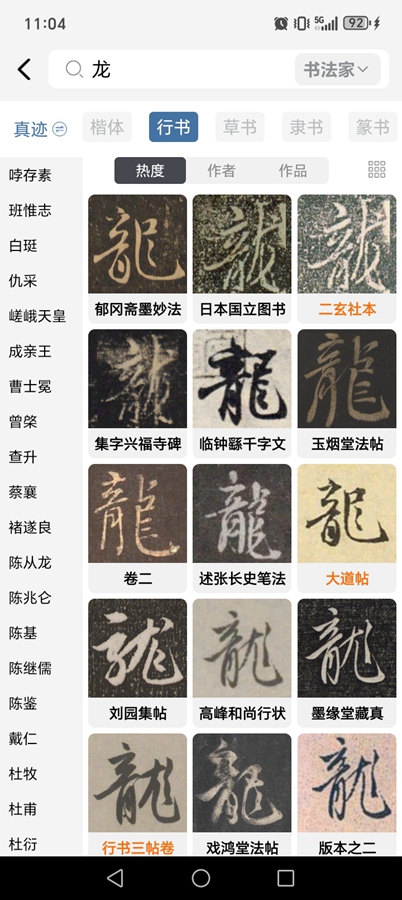 11:04
5G
92
龙
书法家
真迹
楷体
行书
草书
隶书
篆书
热度
作者
作品
哱存素
班惟志
白珽
仇采
嵯峨天皇
成亲王
曹士冕
曾棨
查升
蔡襄
褚遂良
陈从龙
陈兆仑
陈基
陈继儒
陈鉴
戴仁
杜牧
杜甫
杜衍
龍 龍 龍
郁冈斋墨妙法
日本国立图书
二玄社本
龍 龍 龍
集字兴福寺碑
临钟繇千字文
玉烟堂法帖
龍 龍 龍
卷二
述张长史笔法
大道帖
龍 龍 龍
刘园集帖
高峰和尚行状
墨缘堂藏真
龍 龍 龍
行书三帖卷
戏鸿堂法帖
版本之二